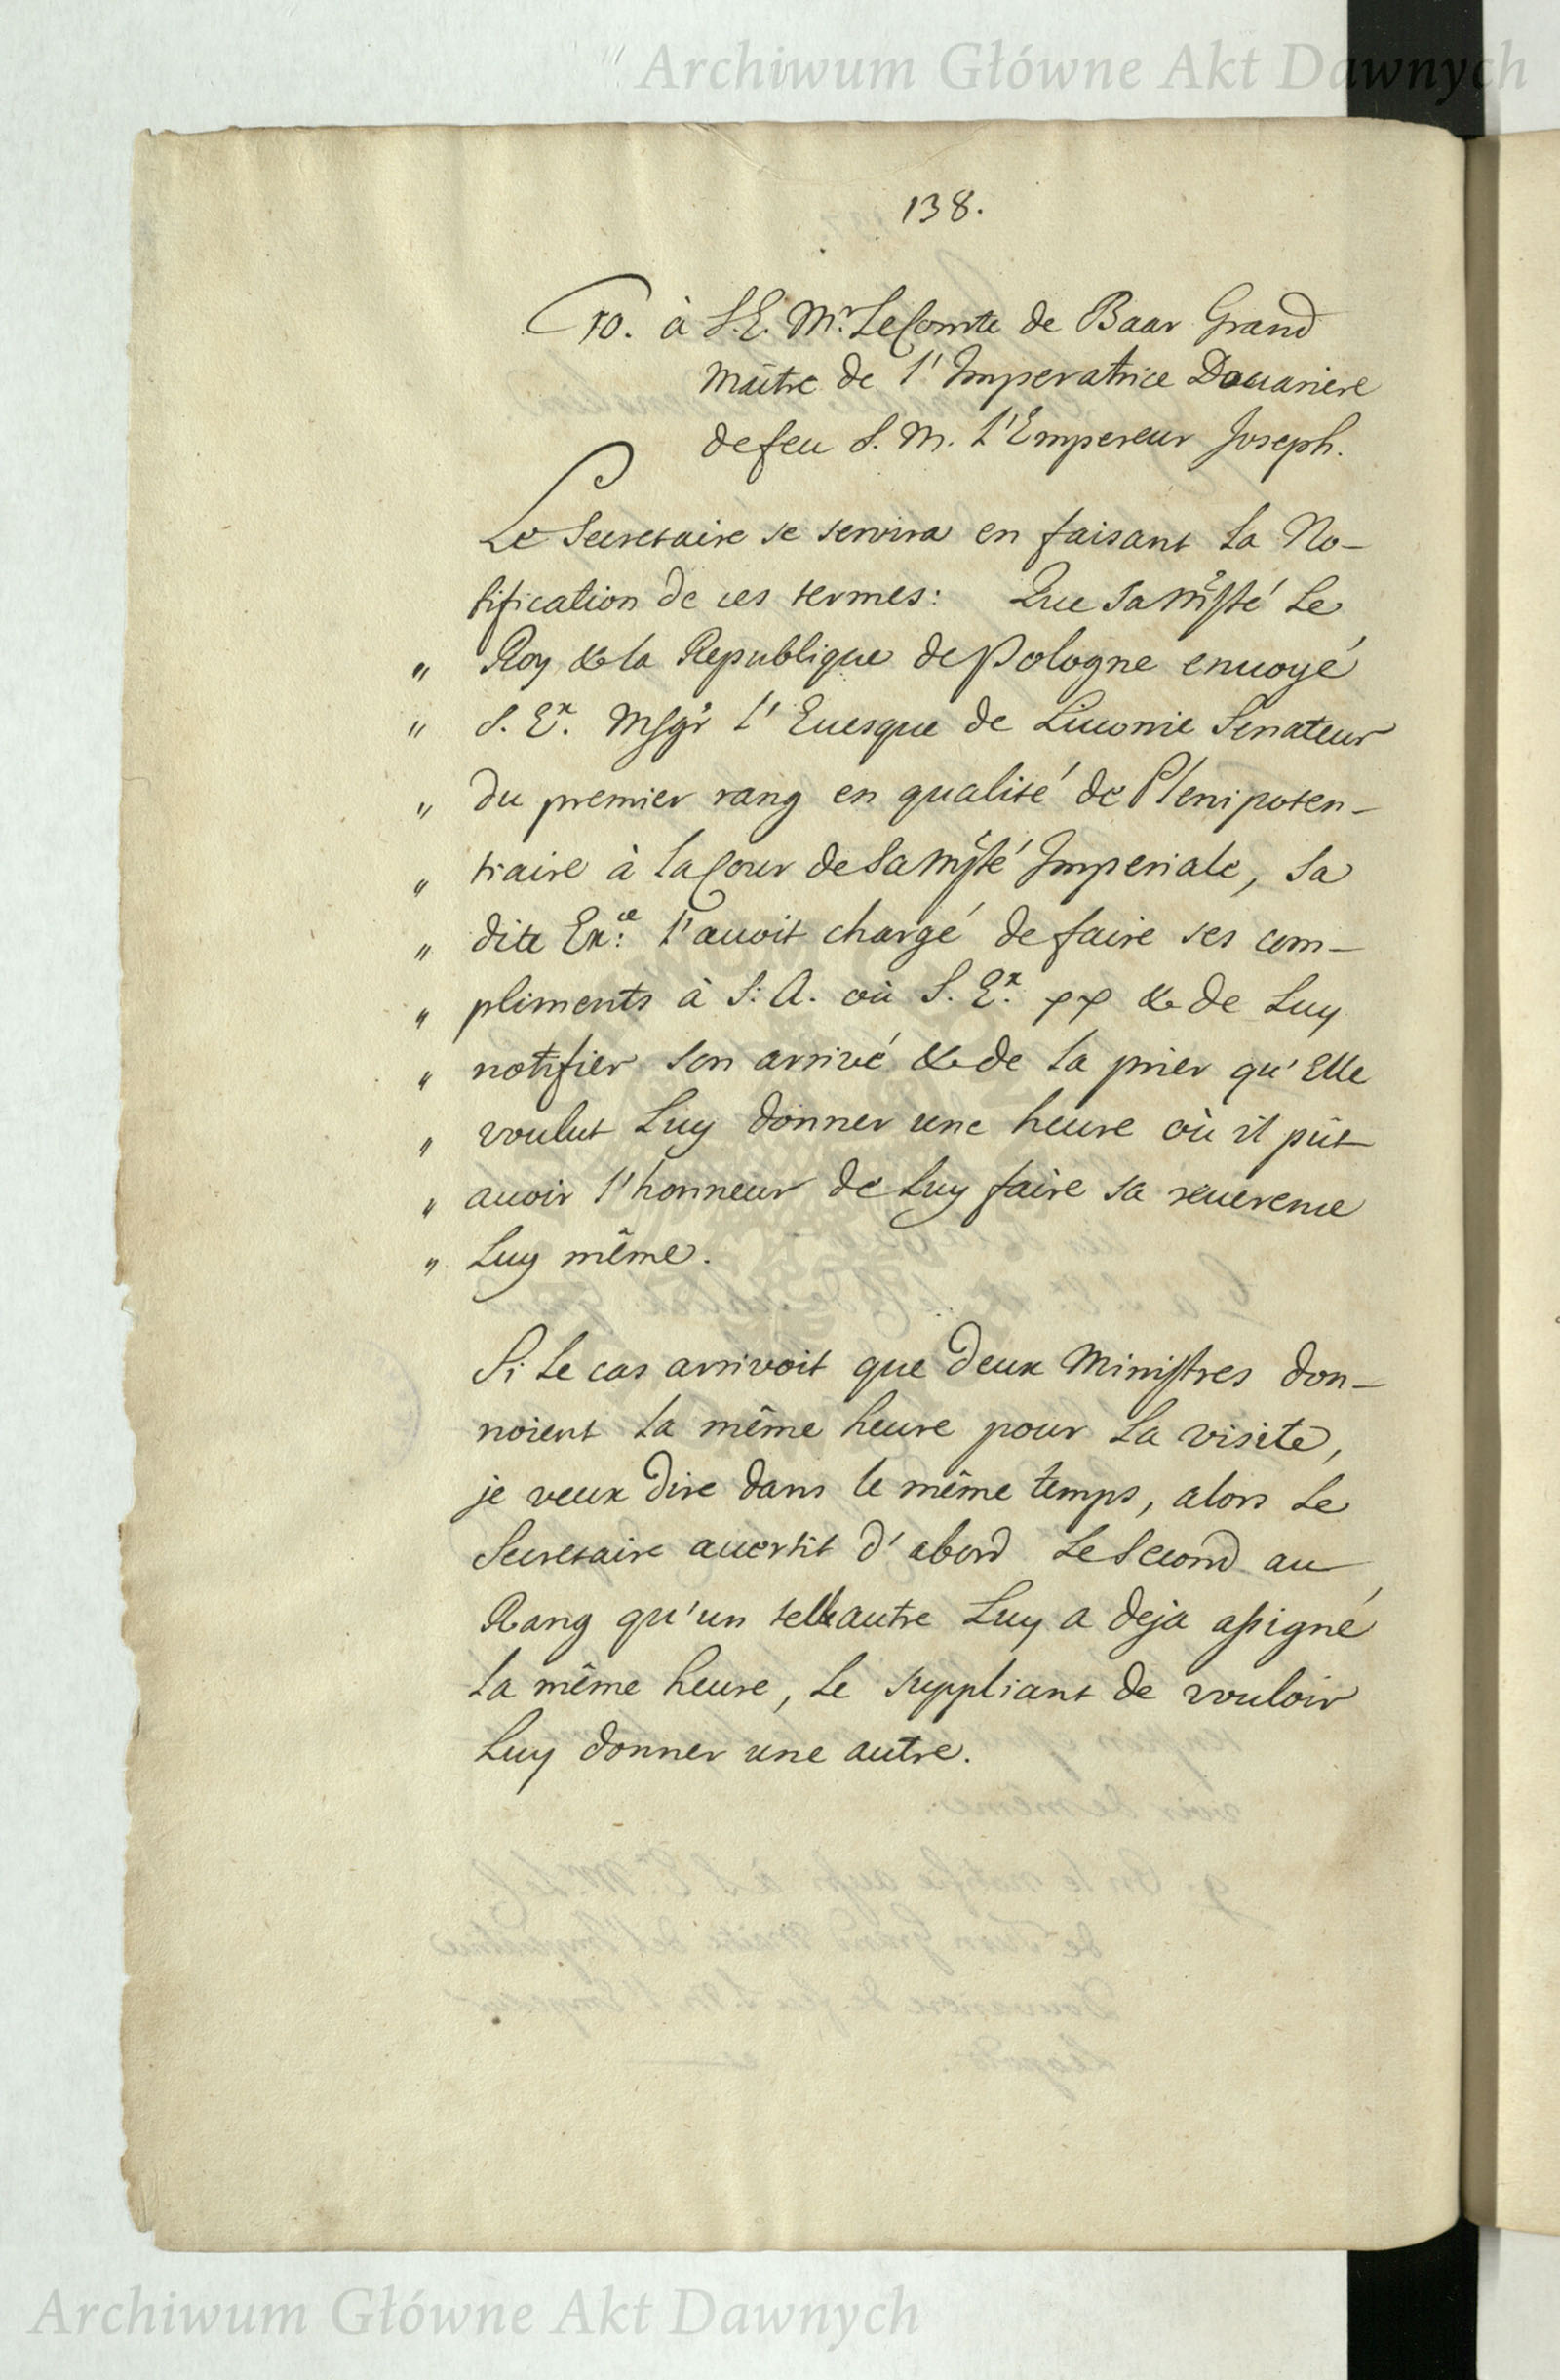 Archiwum Główne Akt Dawnych
138.
10. à S.E. Mr. Le Comte de Baar Grand
Maître de l'Imperatrice Douariere
de feu S. M. l'Empereur Joseph.
Le Secretaire se servira en faisant la No-
tification de ces termes: Que Sa Mjsté le
" Roy & la Republique de Pologne envoyé
" S. Ex. Msgr l'Euesque de Liuonie Senateur
" du premier rang en qualité de Plenipoten-
" tiaire à la Cour de Sa Mjsté Imperiale, Sa
" dite Exce: l'auoit chargé de faire ses com-
" pliments à S: A. où S. Ex. pp & de Luy
" notifier son arrivé & de la prier qu'Elle
" voulut Luy donner une heure où il pût
" auoir l'honneur de Luy faire sa reuerence
" Luy même.
Si le cas arrivoit que deux Ministres don-
noient la même heure pour la visite,
je veux dire dans le même temps, alors le
Secretaire auertit d'abord le Second au
Rang qu'un tell autre Luy a deja assigné
la même heure, le suppliant de vouloir
Luy donner une autre.
Archiwum Główne Akt Dawnych